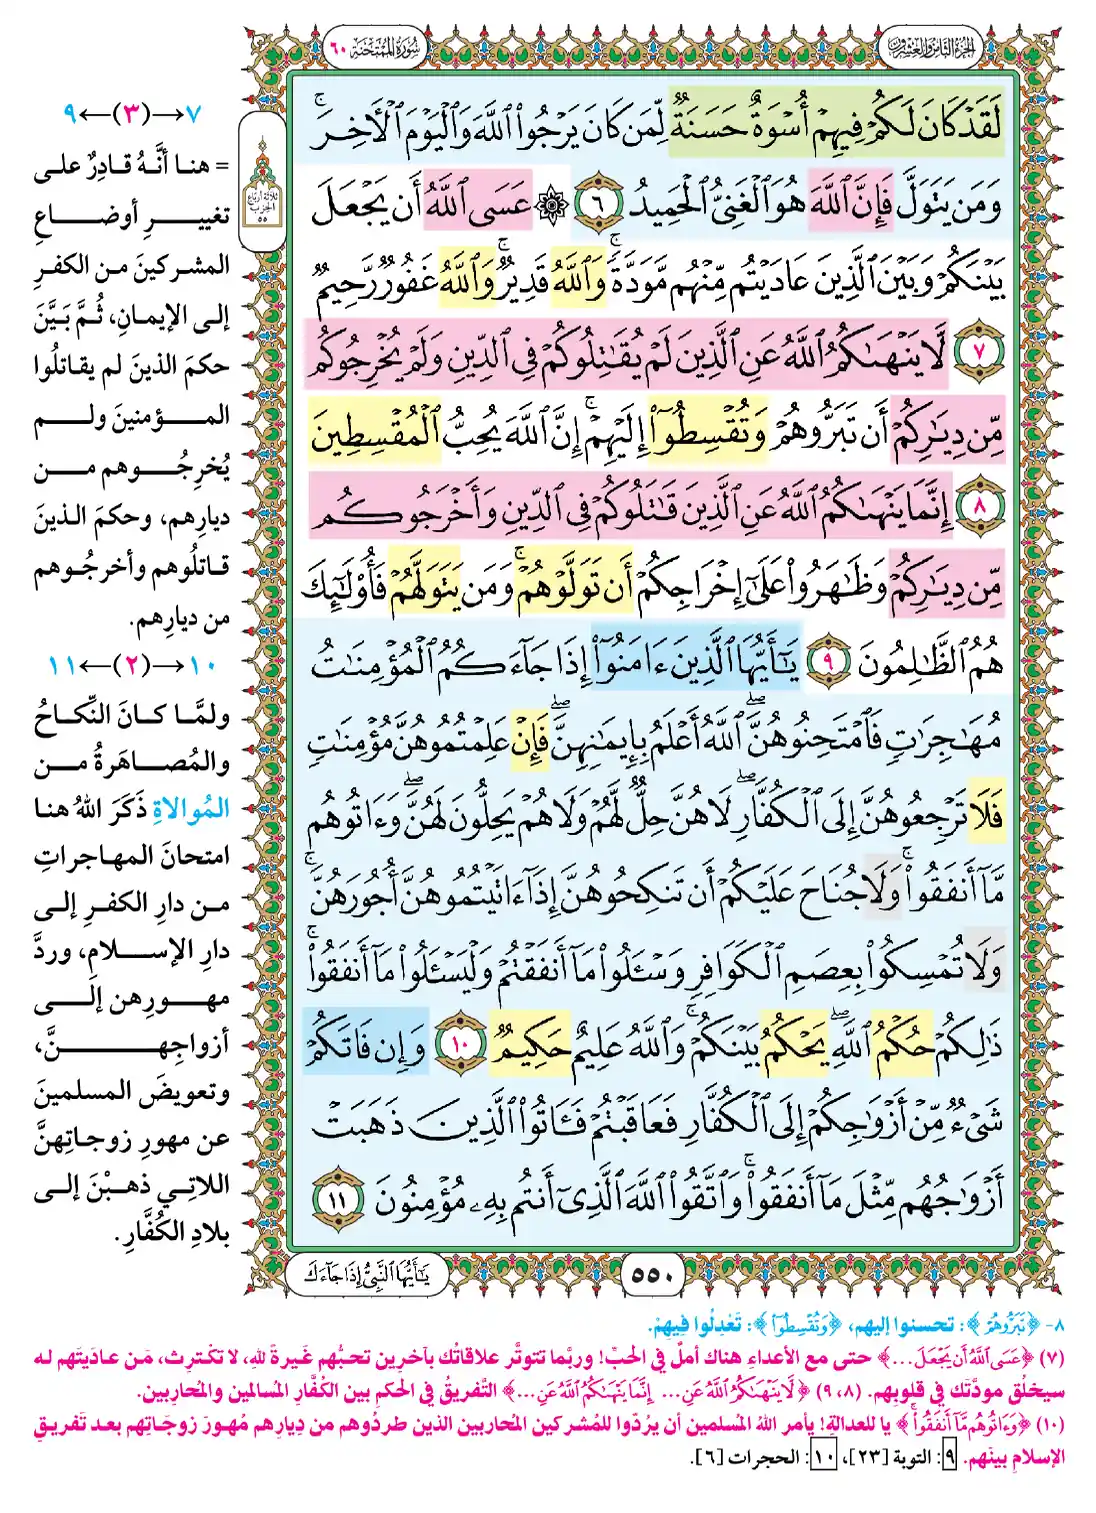 الجزء الثامن والعشرون
سورة الممتحنة ٦٠
لَقَدْ كَانَ لَكُمْ فِيهِمْ أُسْوَةٌ حَسَنَةٌ لِّمَن كَانَ يَرْجُوا۟ ٱللَّهَ وَٱلْيَوْمَ ٱلْـَٔاخِرَ ۚ
وَمَن يَتَوَلَّ فَإِنَّ ٱللَّهَ هُوَ ٱلْغَنِىُّ ٱلْحَمِيدُ ٦ ۞ عَسَى ٱللَّهُ أَن يَجْعَلَ
بَيْنَكُمْ وَبَيْنَ ٱلَّذِينَ عَادَيْتُم مِّنْهُم مَّوَدَّةً ۚ وَٱللَّهُ قَدِيرٌ ۚ وَٱللَّهُ غَفُورٌ رَّحِيمٌ
٧ لَّا يَنْهَىٰكُمُ ٱللَّهُ عَنِ ٱلَّذِينَ لَمْ يُقَٰتِلُوكُمْ فِى ٱلدِّينِ وَلَمْ يُخْرِجُوكُم
مِّن دِيَٰرِكُمْ أَن تَبَرُّوهُمْ وَتُقْسِطُوٓا۟ إِلَيْهِمْ ۚ إِنَّ ٱللَّهَ يُحِبُّ ٱلْمُقْسِطِينَ
٨ إِنَّمَا يَنْهَىٰكُمُ ٱللَّهُ عَنِ ٱلَّذِينَ قَٰتَلُوكُمْ فِى ٱلدِّينِ وَأَخْرَجُوكُم
مِّن دِيَٰرِكُمْ وَظَٰهَرُوا۟ عَلَىٰٓ إِخْرَاجِكُمْ أَن تَوَلَّوْهُمْ ۚ وَمَن يَتَوَلَّهُمْ فَأُو۟لَٰٓئِكَ
هُمُ ٱلظَّٰلِمُونَ ٩ يَٰٓأَيُّهَا ٱلَّذِينَ ءَامَنُوٓا۟ إِذَا جَآءَكُمُ ٱلْمُؤْمِنَٰتُ
مُهَٰجِرَٰتٍ فَٱمْتَحِنُوهُنَّ ۖ ٱللَّهُ أَعْلَمُ بِإِيمَٰنِهِنَّ ۖ فَإِنْ عَلِمْتُمُوهُنَّ مُؤْمِنَٰتٍ
فَلَا تَرْجِعُوهُنَّ إِلَى ٱلْكُفَّارِ ۖ لَا هُنَّ حِلٌّ لَّهُمْ وَلَا هُمْ يَحِلُّونَ لَهُنَّ ۖ وَءَاتُوهُم
مَّآ أَنفَقُوا۟ ۚ وَلَا جُنَاحَ عَلَيْكُمْ أَن تَنكِحُوهُنَّ إِذَآ ءَاتَيْتُمُوهُنَّ أُجُورَهُنَّ ۚ
وَلَا تُمْسِكُوا۟ بِعِصَمِ ٱلْكَوَافِرِ وَسْـَٔلُوا۟ مَآ أَنفَقْتُمْ وَلْيَسْـَٔلُوا۟ مَآ أَنفَقُوا۟ ۚ
ذَٰلِكُمْ حُكْمُ ٱللَّهِ ۖ يَحْكُمُ بَيْنَكُمْ ۚ وَٱللَّهُ عَلِيمٌ حَكِيمٌ ١٠ وَإِن فَاتَكُمْ
شَىْءٌ مِّنْ أَزْوَٰجِكُمْ إِلَى ٱلْكُفَّارِ فَعَاقَبْتُمْ فَـَٔاتُوا۟ ٱلَّذِينَ ذَهَبَتْ
أَزْوَٰجُهُم مِّثْلَ مَآ أَنفَقُوا۟ ۚ وَٱتَّقُوا۟ ٱللَّهَ ٱلَّذِىٓ أَنتُم بِهِۦ مُؤْمِنُونَ ١١
٥٥٠
يَٰٓأَيُّهَا ٱلنَّبِىُّ إِذَا جَآءَكَ
ثلاثة أرباع
الحزب
٥٥
٧→(٣)←٩
= هنا أنَّهُ قادِرٌ على
تغييرِ أوضاعِ
المشركينَ من الكفرِ
إلى الإيمانِ، ثُمَّ بَيَّنَ
حكمَ الذينَ لم يقاتلُوا
المؤمنينَ ولم
يُخرِجُوهم من
ديارِهم، وحكمَ الذينَ
قاتلُوهم وأخرجُوهم
من ديارِهم.
١٠→(٢)←١١
ولمَّا كانَ النِّكاحُ
والمُصاهَرةُ من
المُوالاةِ ذَكَرَ اللهُ هنا
امتحانَ المهاجراتِ
من دارِ الكفرِ إلى
دارِ الإسلامِ، وردَّ
مهورِهن إلى
أزواجِهنَّ،
وتعويضَ المسلمينَ
عن مهورِ زوجاتِهنَّ
اللاتِي ذهبْنَ إلى
بلادِ الكُفَّارِ.
٨- ﴿تَبَرُّوهُمْ﴾: تحسنوا إليهم، ﴿وَتُقْسِطُوٓا۟﴾: تَعْدِلُوا فِيهِمْ.
(٧) ﴿عَسَى ٱللَّهُ أَن يَجْعَلَ...﴾ حتى مع الأعداءِ هناك أملٌ في الحبِّ! وربَّما تتوتَّر علاقاتُك بآخرِين تحبُّهم غَيرةً للهِ، لا تكْترِث، مَن عادَيتَهم له
سيخلُق مودَّتك في قلوبِهم. (٨، ٩) ﴿لَّا يَنْهَىٰكُمُ ٱللَّهُ عَنِ... إِنَّمَا يَنْهَىٰكُمُ ٱللَّهُ عَنِ...﴾ التَّفريقُ في الحكمِ بين الكفَّارِ المُسالمين والمُحاربِين.
(١٠) ﴿وَءَاتُوهُم مَّآ أَنفَقُوا۟ ۚ﴾ يا للعدالةِ! يأمر اللهُ المُسلمين أن يرُدّوا للمُشركين المُحاربين الذين طردُوهم من دِيارِهم مُهورَ زوجَاتِهم بعد تَفريقِ
الإسلامِ بينَهم. ٩: التوبة [٢٣]، ١٠: الحجرات [٦].